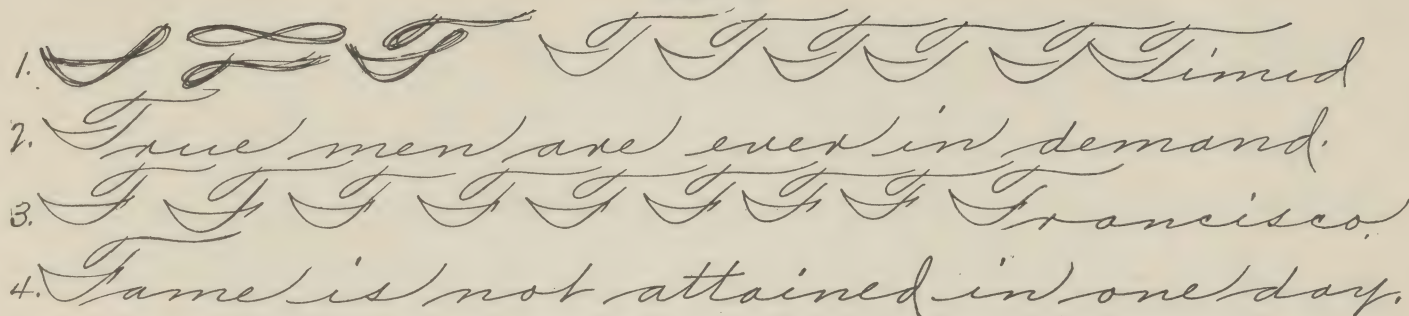 1. T T T T T T Timid
2. True men are ever in demand.
3. F F F F F F F F Francisco.
4. Fame is not attained in one day.